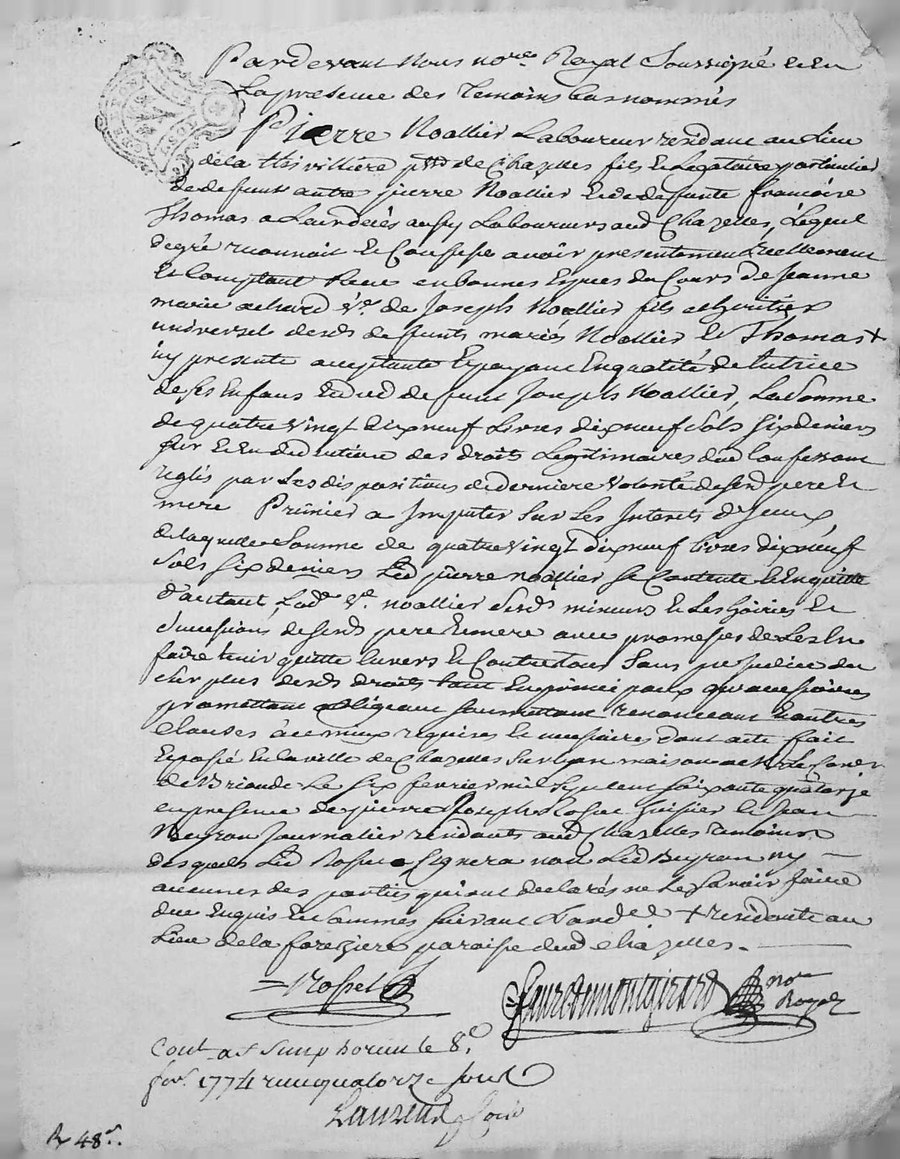 Pardevant Nous no.re Royal Soussigné et en
La presence des Temoins bas nommés
Pierre Noallier Laboureur residant au Lieu
de la p.sse de Chazelles fils et Legataire particulier
de defunt autre pierre Noallier et de defunte francoise
Thomas a Leur deces aussy Laboureurs aud Chazelles, Lequel
de gré reconnoit et Confesse avoir presentement reellement
et Comptant Receu en bonnes Especes du Cours de Jeanne
marie v.e de Joseph Noallier fils et heritier
universel desds defunts mariés Noallier et Thomas +
icy presente acceptante et payant En qualité de tutrice
de ses Enfans et dud defunt Joseph Noallier, La Somme
de quatre vingt dix neuf Livres dix neuf Sols Six deniers
Sur et en deduction des droits Legitimaires dud Confessant
reglés par Les dispositions de derniere volonté desds pere et
mere Premier a Imputer Sur Les Interets d'Iceux
de laquelle Somme de quatre vingt dix neuf livres dix neuf
Sols Six deniers Led pierre noallier Se Contente et En quitte
d'autant Lad.e V.e noallier Sesds mineurs et Les hoiries et
Successions desds pere et mere avec promesse de Les En
faire tenir quitte Envers et Contre tous Sans prejudice du
plus desds droits tant En principaux qu'accessoires
promettant obligeant Soumettant renonceant et autres
Clauses à ce mieux requises et necessaires dont acte fait
et passé En la ville de Chazelles Sur Lyon maison
de Le Six fevrier mil Sept cent Soixante quatorze
en presence de pierre Joseph Rossel huissier et Jean
Journalier residants aud Chazelles Temoins
desquels Led Rossel Signera non Led ny —
aucunes des parties qui ont declarés ne Le Savoir faire
de ce Enquis et Sommés Suivant L'ord.ce + residante au
Lieu de la foreziere paroisse dud Chazelles. —
Rossel
faure de montgirard no.re
Royal
Cont a S.t Simphorien le 8.e
fev. 1774 recu quatorze Sols
Laurend
R 48 s.